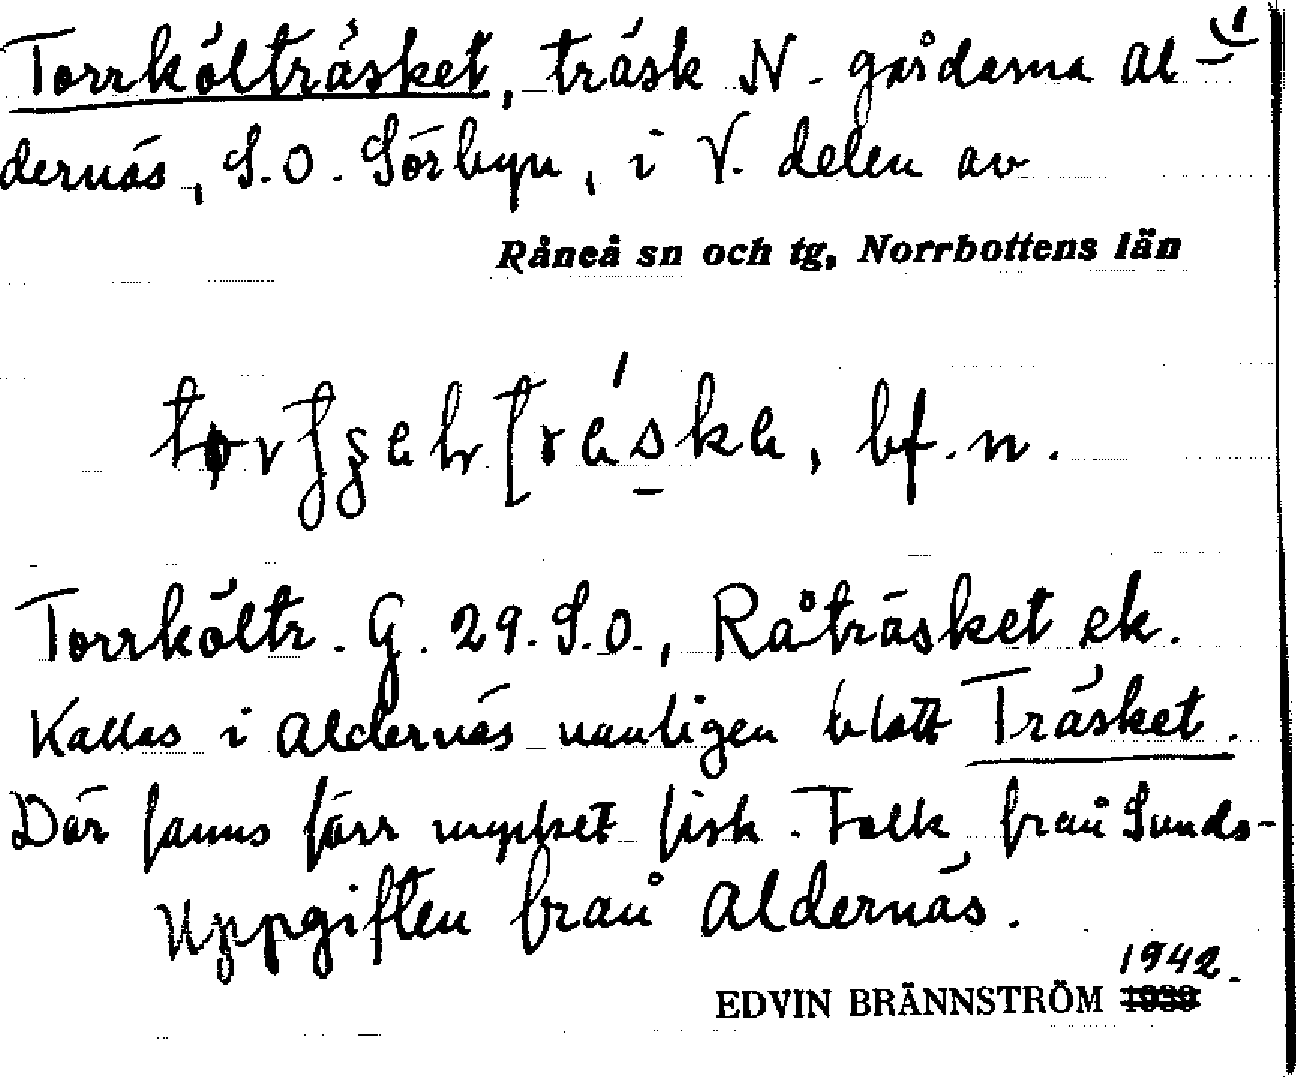 Torrkölträsket, träsk N. gårdarna Al-
dernäs, S.O. Sörbyn, i V. delen av
Råneå sn och tg, Norrbottens län
bf. n.
Torrköltr. G. 29. S.O., Råträsket ek.
Kallas i Aldernäs vanligen blott Träsket.
Där fanns förr mycket fisk. Folk från Sunds-
Uppgiften från Aldernäs.
1942.
EDVIN BRÄNNSTRÖM 1939